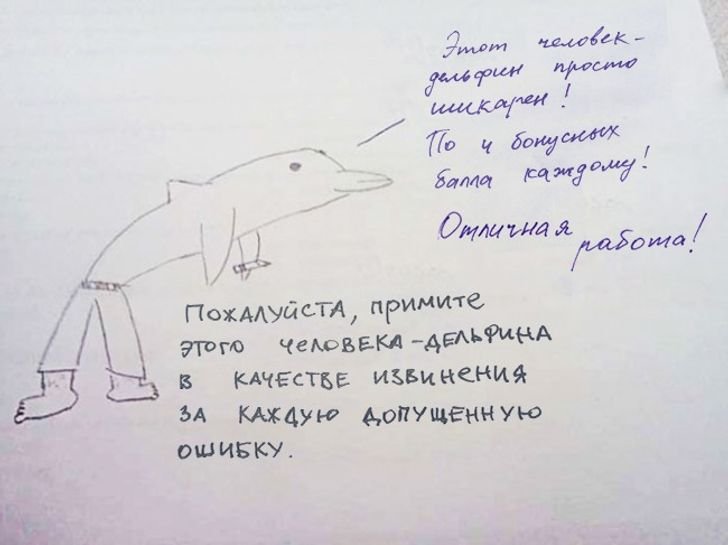 Этот человек-
дельфин просто
шикарен!
По 4 бонусных
балла каждому!
Отличная
работа!
Пожалуйста, примите
этого человека-дельфина
в качестве извинения
за каждую допущенную
ошибку.